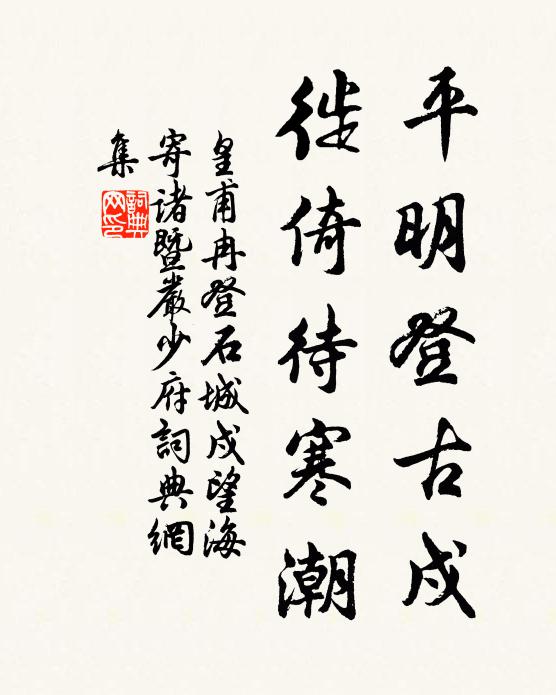 平明登古戍
徙倚待寒潮
皇甫冉登石城戍望海
寄诸暨嚴少府詞典網
集
詞典
网印